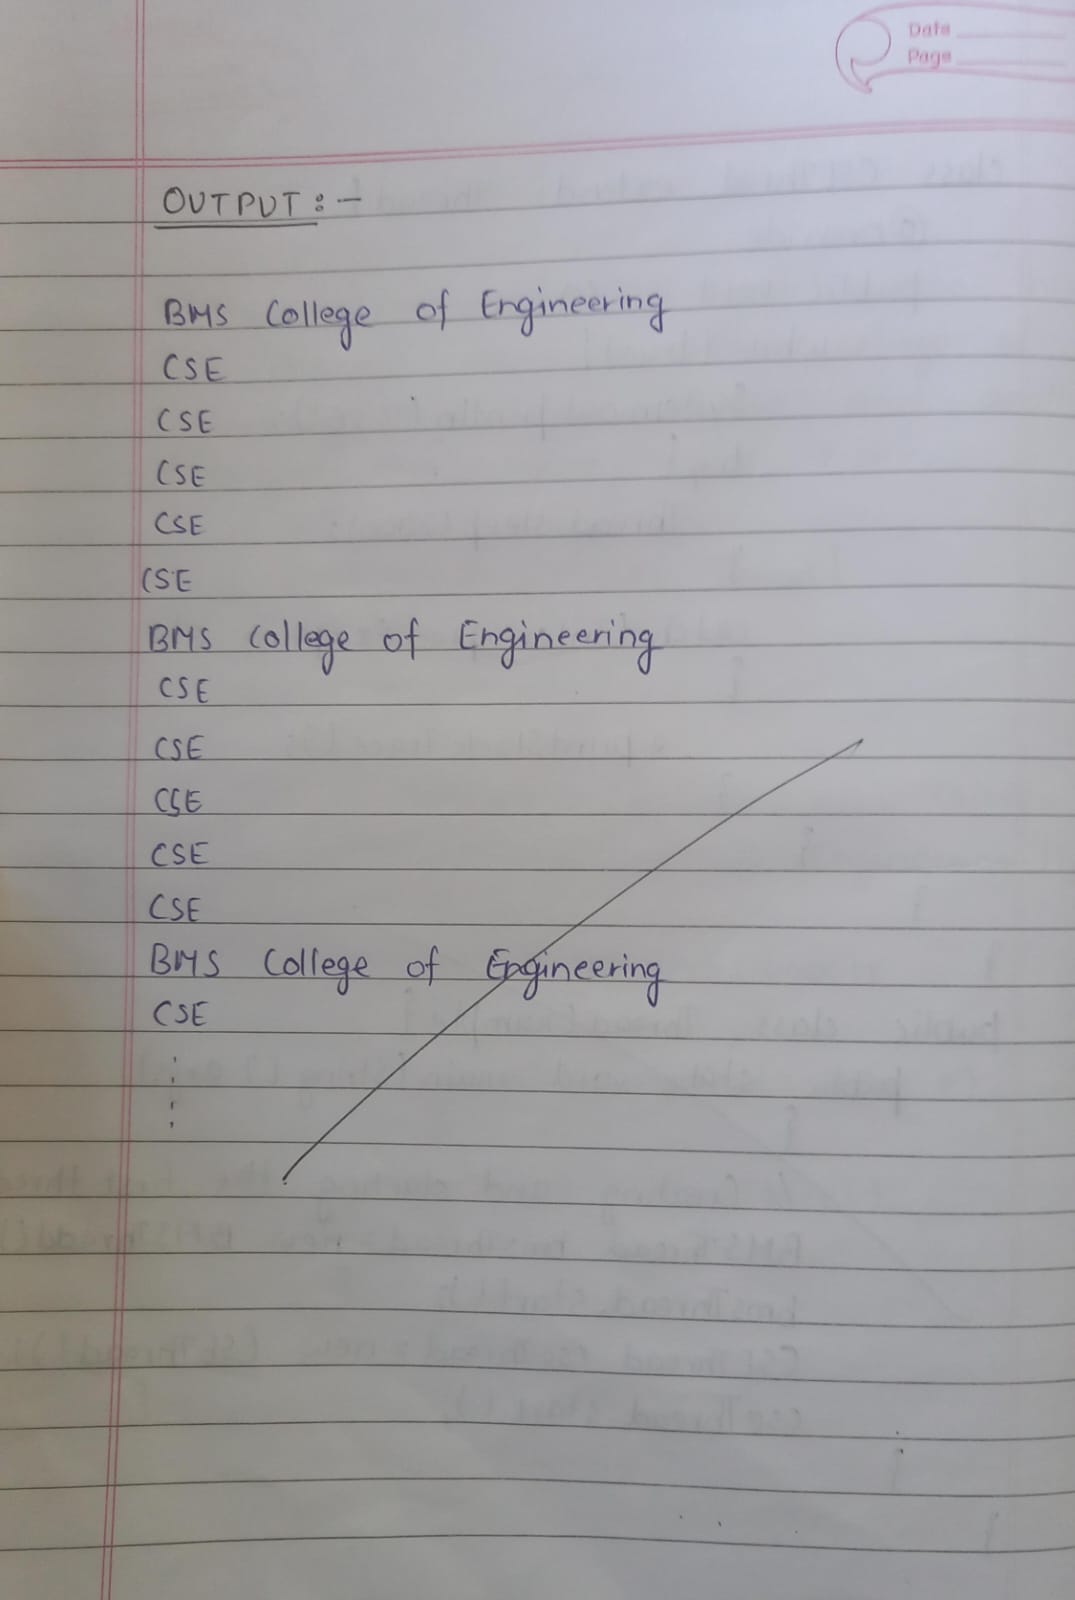 Date
Page
OUTPUT :-
BMS College of Engineering
CSE
CSE
CSE
CSE
CSE
BMS College of Engineering
CSE
CSE
CSE
CSE
CSE
BMS College of Engineering
CSE